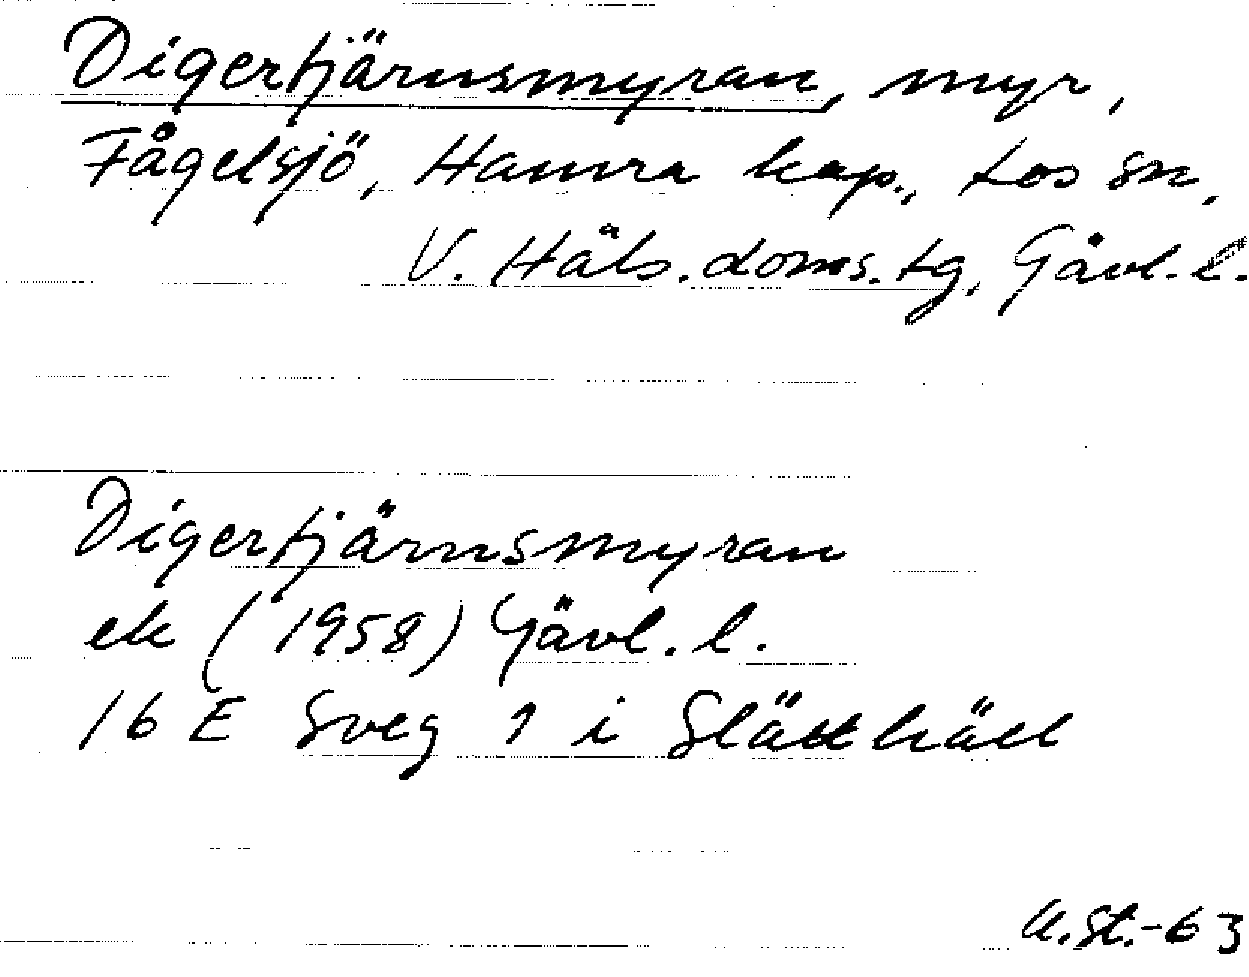 Digertjärnsmyran, myr,
Fågelsjö, Hamra kap., Los sn,
V. Häls. doms. tg, Gävl. l.
Digertjärnsmyran
ek (1958) Gävl. l.
16 E Sveg 1 i
U. St.-63